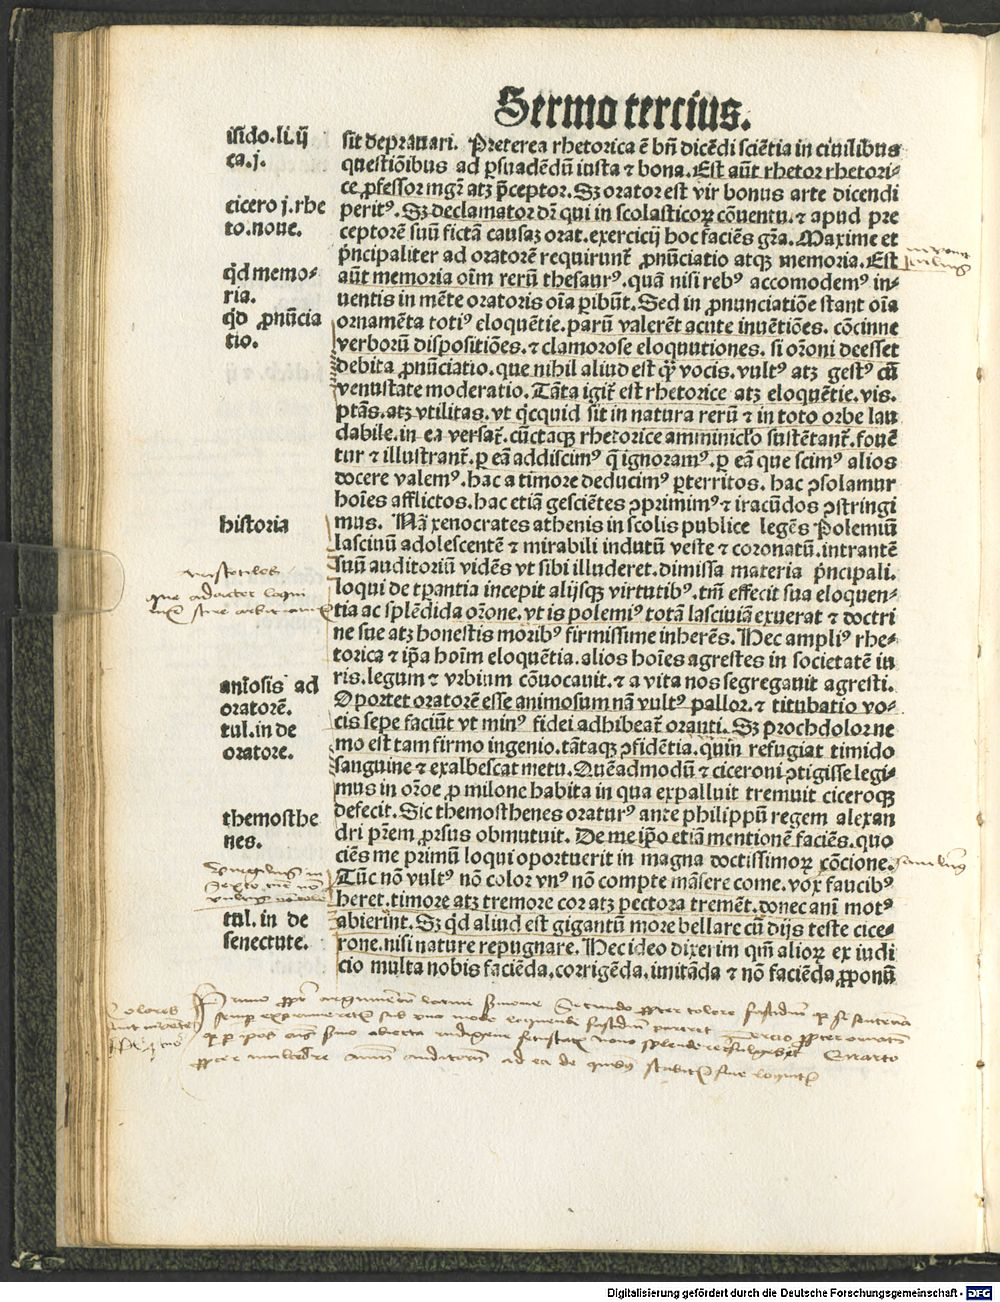 Sermo tercius.
isido.li.ij
ca.j.
cicero j.rhe
to.noue.
qͥd memo⸗
ria.
qͥd ꝓnūcia
tio.
historia
aīosis ad
oratorē.
tul.in de
oratore.
themosthe
nes.
tul. in de
senectute.
sit deprauari. Preterea rhetorica ē bn̄ dicēdi sciētia in ciuilibus
questiōibus ad ꝑsuadēdū iusta ⁊ bona. Est aūt rhetor rhetori⸗
ce ꝓfessor mgr̄ atꝫ p̄ceptor. Sꝫ orator est vir bonus arte dicendi
peritꝰ. Sꝫ declamator dr̄ qui in scolasticoꝝ cōuentu. ⁊ apud pre
ceptorē suū fictā causaꝫ orat. exercicij hoc faciēs gr̄a. Maxime et
pͥncipaliter ad oratorē requirunt̄ ꝓnūciatio atqꝫ memoria. Est
aūt memoria oīm rerū thesaurꝰ. quā nisi rebꝰ accomodemꝰ in⸗
uentis in mēte oratoris oīa ꝑibūt. Sed in ꝓnunciatiōe stant oīa
ornamēta totiꝰ eloquētie. parū valerēt acute inuētiōes. cōcinne
verborū dispositiōes. ⁊ clamorose eloquutiones. si or̄oni deesset
debita ꝓnūciatio. que nihil aliud est qͣꝫ vocis. vultꝰ atꝫ gestꝰ cū
venustate moderatio. Tāta igit̄ est rhetorice atꝫ eloquētie. vis.
ptās. atꝫ vtilitas. vt qͥcquid sit in natura rerū ⁊ in toto orbe lau
dabile. in ea versat̄. cūctaqꝫ rhetorice amminicl̓o sustētant̄. fouē
tur ⁊ illustrant̄. ꝑ eā addiscimꝰ q̄ ignoramꝰ. ꝑ eā que scimꝰ alios
docere valemꝰ. hac a timore deducimꝰ ꝑterritos. hac ꝯsolamur
hoīes afflictos. hac etiā gesciētes ꝯprimimꝰ ⁊ iracūdos ꝯstringi
mus. Nā xenocrates athenis in scolis publice legēs Polemiū
lasciuū adolescentē ⁊ mirabili indutū veste ⁊ coronatū. intrantē
suū auditoriū vidēs vt sibi illuderet. dimissa materia pͥncipali.
loqui de tꝑantia incepit alijsqꝫ virtutibꝰ. tm̄ effecit sua eloquen⸗
tia ac splēdida or̄one. vt is polemiꝰ totā lasciuiā exuerat ⁊ doctri
ne sue atꝫ honestis moribꝰ firmissime inherēs. Hec ampliꝰ rhe⸗
torica ⁊ ip̄a hoīm eloquētia. alios hoīes agrestes in societatē iu
ris. legum ⁊ vrbium cōuocauit. ⁊ a vita nos segregauit agresti.
Oportet oratorē esse animosum nā vultꝰ pallor. ⁊ titubatio vo⸗
cis sepe faciūt vt minꝰ fidei adhibeat̄ oranti. Sꝫ prochdolor ne
mo est tam firmo ingenio. tātaqꝫ ꝯfidētia. quin refugiat timido
sanguine ⁊ exalbescat metu. Quēadmodū ⁊ ciceroni ꝯtigisse legi⸗
mus in or̄oe ꝓ milone habita in qua expalluit tremuit ciceroqꝫ
defecit. Sic themosthenes oraturꝰ ante philippū regem alexan
dri pr̄em ꝓrsus obmutuit. De me ip̄o etiā mentionē faciēs. quo
ciēs me primū loqui oportuerit in magna doctissimoꝝ cōcione.
Tūc nō vultꝰ nō color vnꝰ nō compte māsere come. vox faucibꝰ
heret. timore atꝫ tremore cor atꝫ pectora tremēt. donec animꝰ motꝰ
abierint. Sꝫ qͥd aliud est gigantū more bellare cū dijs teste cice⸗
rone. nisi nature repugnare. Hec ideo dixerim qm̄ alioꝝ ex iudi
cio multa nobis faciēda. corrigēda. imitāda ⁊ nō faciēda ꝓponū
Digitalisierung gefördert durch die Deutsche Forschungsgemeinschaft - DFG